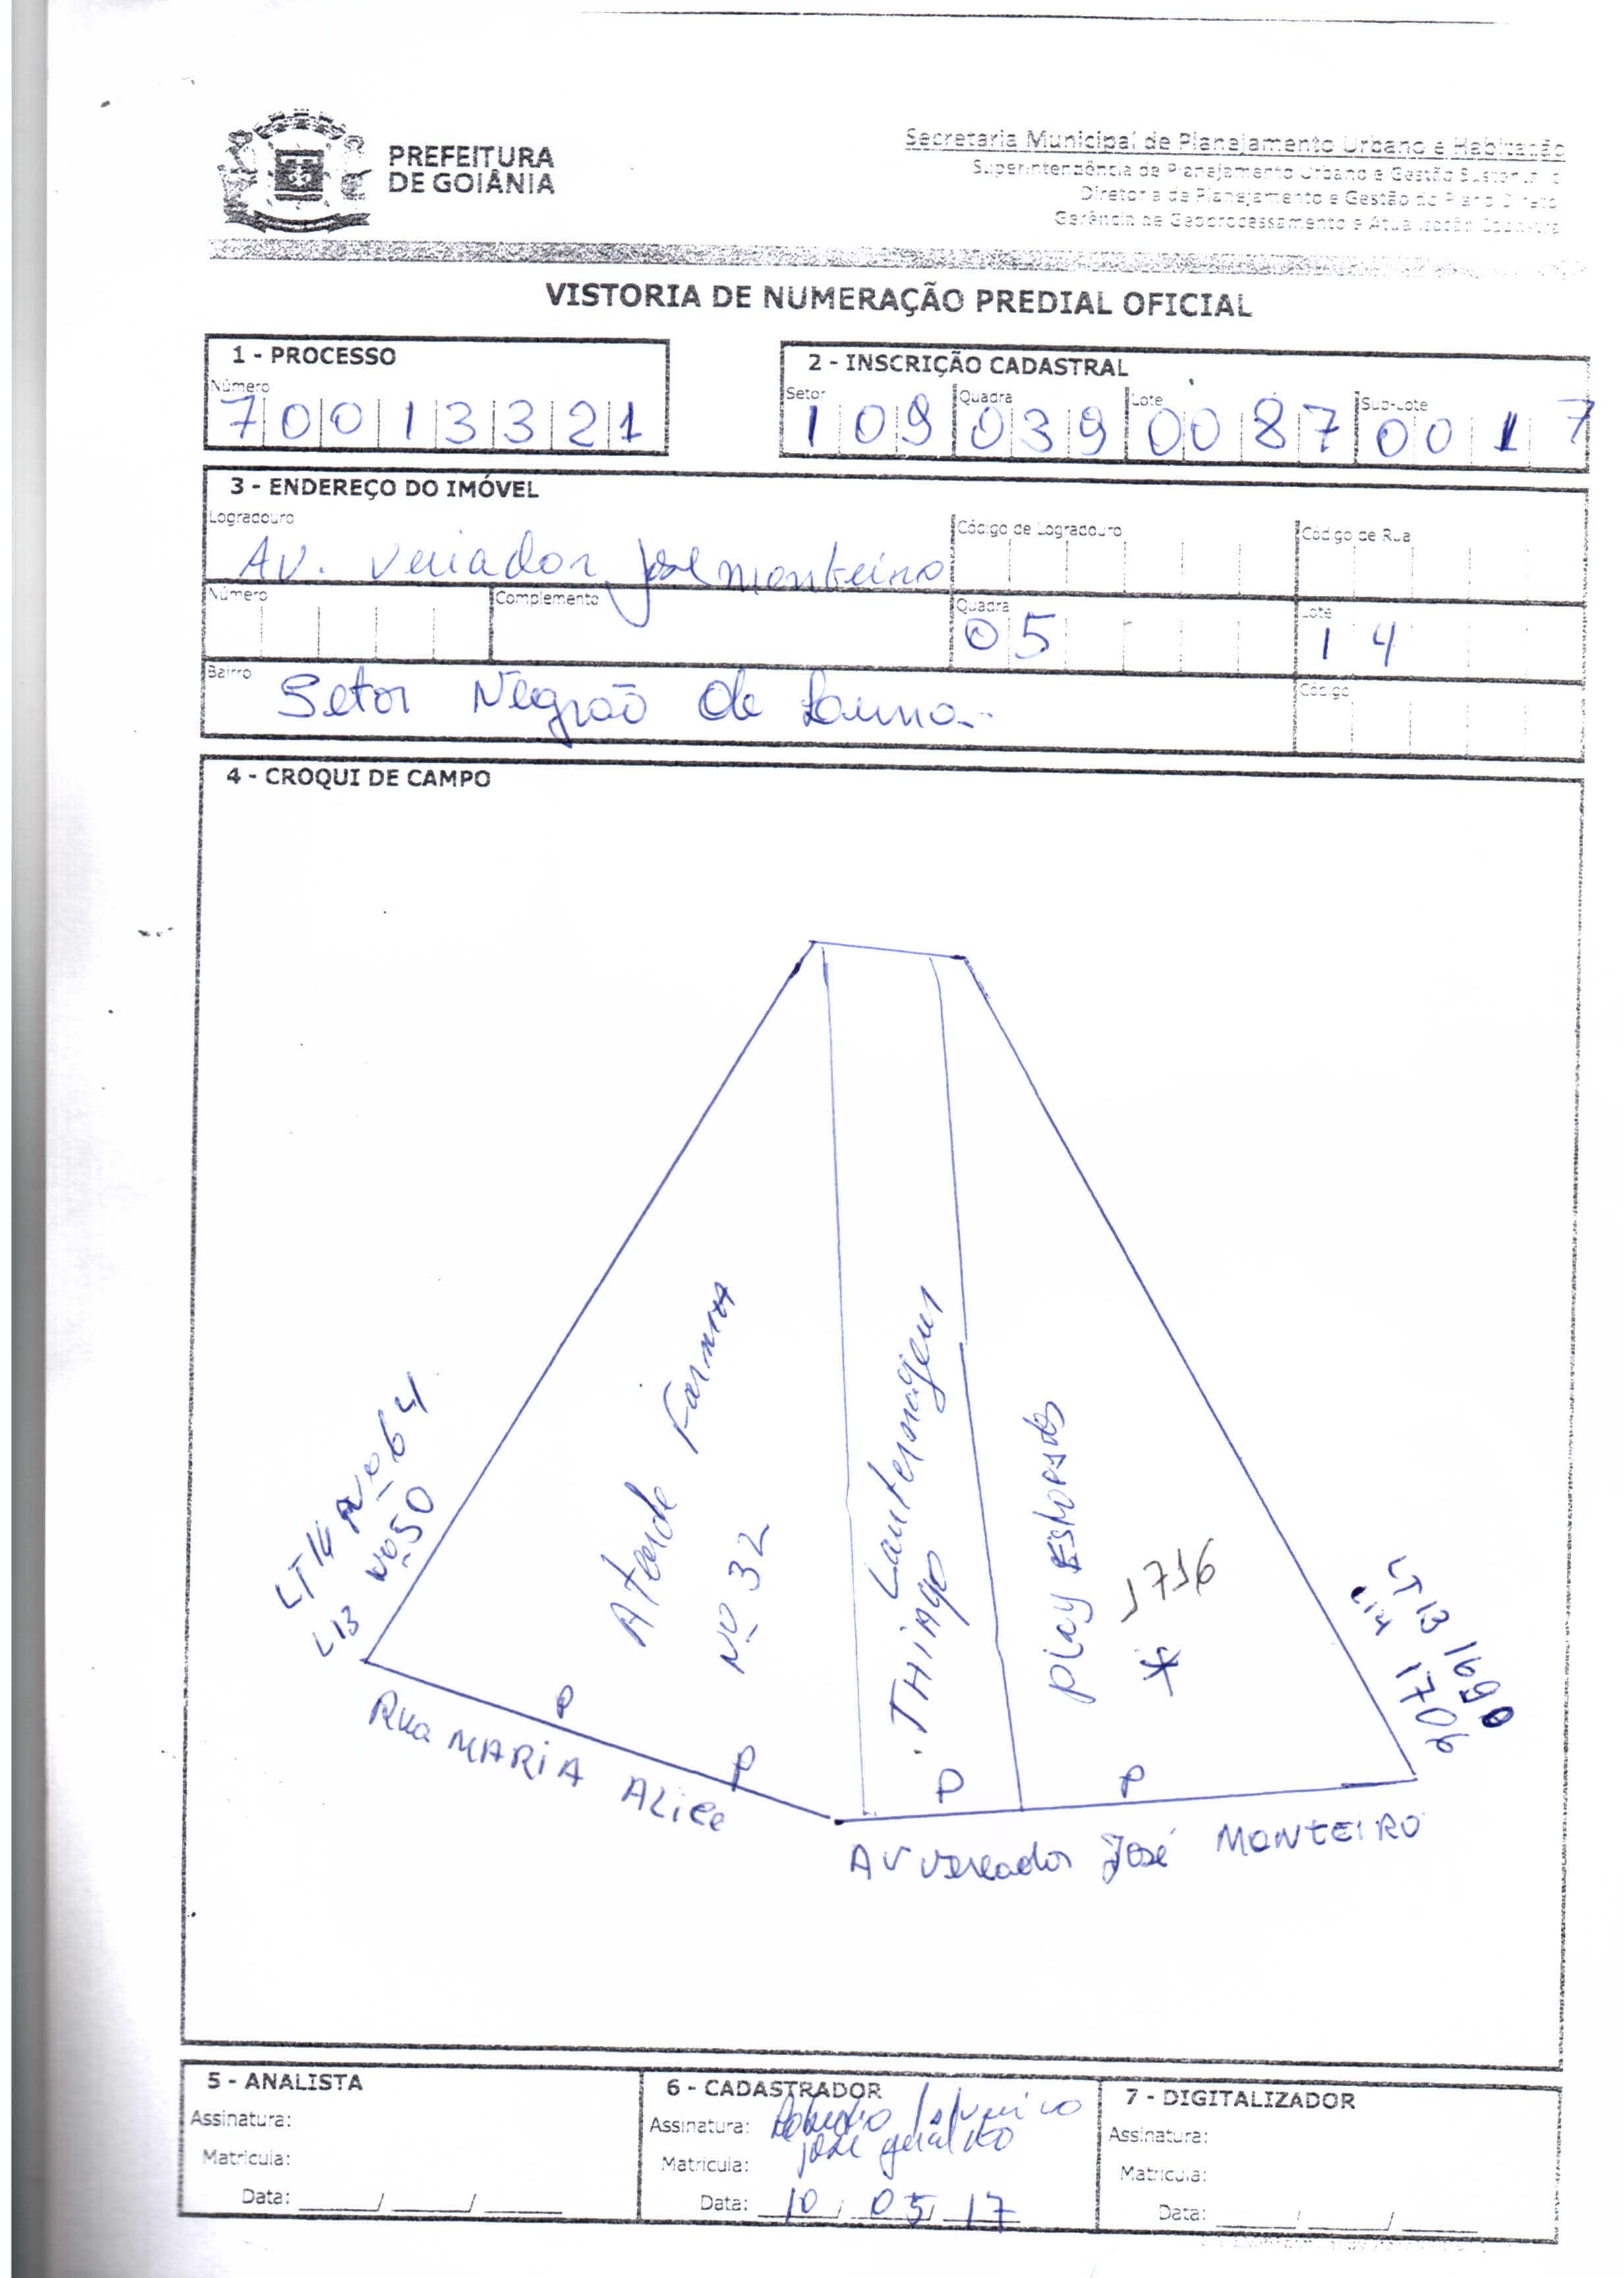 PREFEITURA
DE GOIÂNIA
Secretaria Municipal de Planejamento Urbano e Habitação
Superintendência de Planejamento Urbano e Gestão
Diretoria de Planejamento e Gestão do Plano Diretor
Gerência de Geoprocessamento e Atualização Cadastral
VISTORIA DE NUMERAÇÃO PREDIAL OFICIAL
1 - PROCESSO
Número
70013321
2 - INSCRIÇÃO CADASTRAL
Setor Quadra Lote Sub-Lote
109 039 0087 0017
3 - ENDEREÇO DO IMÓVEL
Logradouro Código de Logradouro Código de Rua
Av. Veriador José monteiro
Número Complemento Quadra Lote
05 14
Bairro Código
Setor Negrão de Lima
4 - CROQUI DE CAMPO
LT 14 Nº 64
L13 Nº 50
Atende Farma
Nº 32
Lanternagem
THIAgo
Play Estofados
1716
*
LT 13 1690
L14 1706
P
P
P
P
Rua MARIA ALice
AV vereador José MONTEIRO
5 - ANALISTA
Assinatura:
Matrícula:
Data: ____/____/____
6 - CADASTRADOR
Assinatura:
José geraldo
Matrícula:
Data: 10/05/17
7 - DIGITALIZADOR
Assinatura:
Matrícula:
Data: ____/____/____